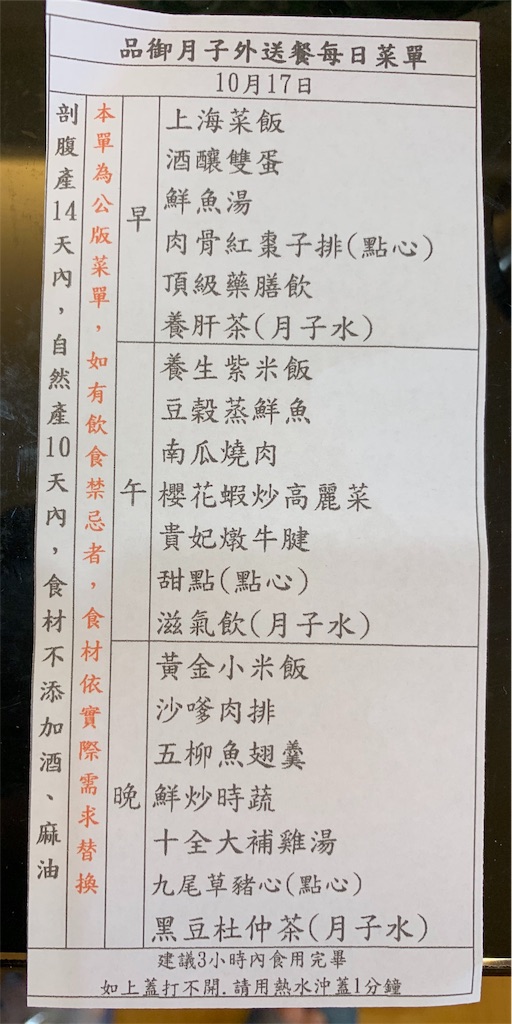 品御月子外送餐每日菜單
10月17日
剖腹產14天內，自然產10天內，食材不添加酒、麻油
本單為公版菜單，如有飲食禁忌者，食材依實際需求替換
早
上海菜飯
酒釀雙蛋
鮮魚湯
肉骨紅棗子排(點心)
頂級藥膳飲
養肝茶(月子水)
午
養生紫米飯
豆穀蒸鮮魚
南瓜燒肉
櫻花蝦炒高麗菜
貴妃燉牛腱
甜點(點心)
滋氣飲(月子水)
晚
黃金小米飯
沙嗲肉排
五柳魚翅羹
鮮炒時蔬
十全大補雞湯
九尾草豬心(點心)
黑豆杜仲茶(月子水)
建議3小時內食用完畢
如上蓋打不開.請用熱水沖蓋1分鐘